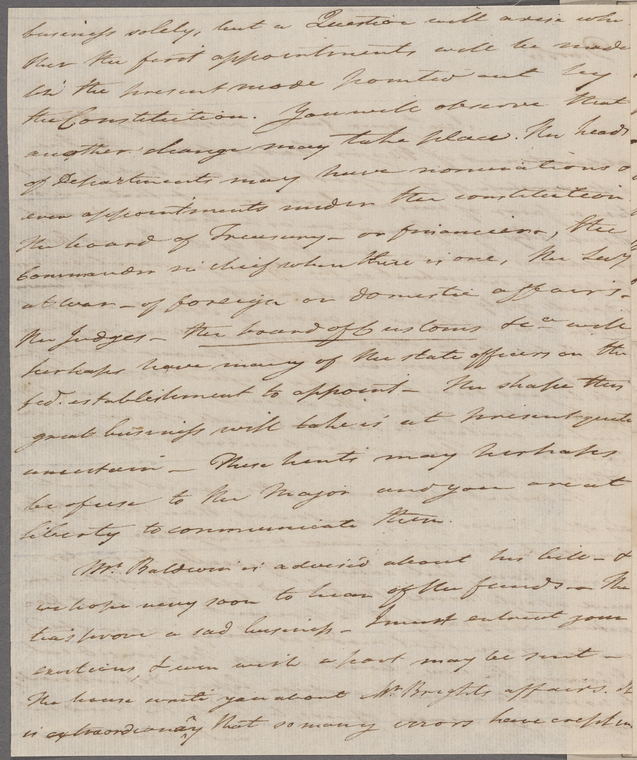 business solely, but a Question will arise whe
ther the first appointments will be made
in the present mode pointed out by
the Constitution. You will observe that
another change may take place. The heads
of Departments may have nominations o
even appointments under the constitution
The board of Treasury – or financier –, the
Commander in chief when there is one, the Secy
at war – of foreign or domestic affairs –
the Judges – the board of Customs &ca will
perhaps have many of the state officers on the
fed. establishment to appoint – The shape this
great business will take is at present quite
uncertain – These hints may perhaps
be of use to the Major and you are at
liberty to communicate them.
Mr. Baldwin is advised about his bill – &
we hope very soon to hear of the funds – The
teas prove a sad business – I must entreat your
exertions, & even wish a part may be sent –
The house write you about Mr Brights affairs. It
is extraordinary that so many errors have crept in